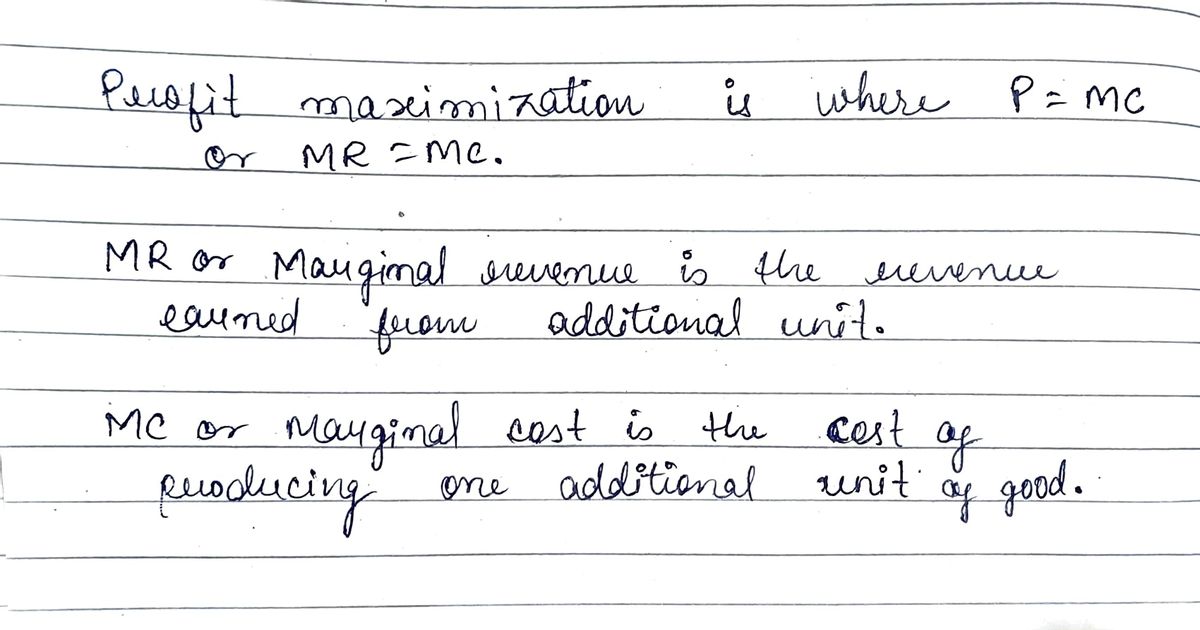 Profit maximization is where P = MC
or MR = MC.
MR or Marginal revenue is the revenue
earned from additional unit.
MC or Marginal cost is the cost of
producing one additional unit of good.